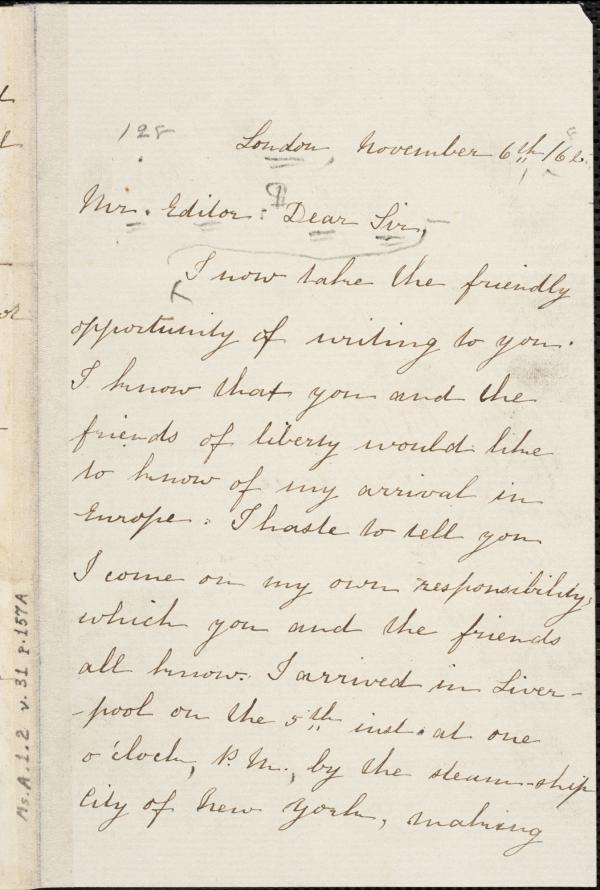 128
London, November 6th /62.
Mr. Editor: Dear Sir,
I now take the friendly
opportunity of writing to you.
I know that you and the
friends of liberty would like
to know of my arrival in
Europe. I haste to tell you
I come on my own responsibility,
which you and the friends
all know. I arrived in Liver-
-pool on the 5th inst. at one
o'clock, P.M., by the steam-ship
City of New York, making
Ms.A.1.2 v.31 p.157A